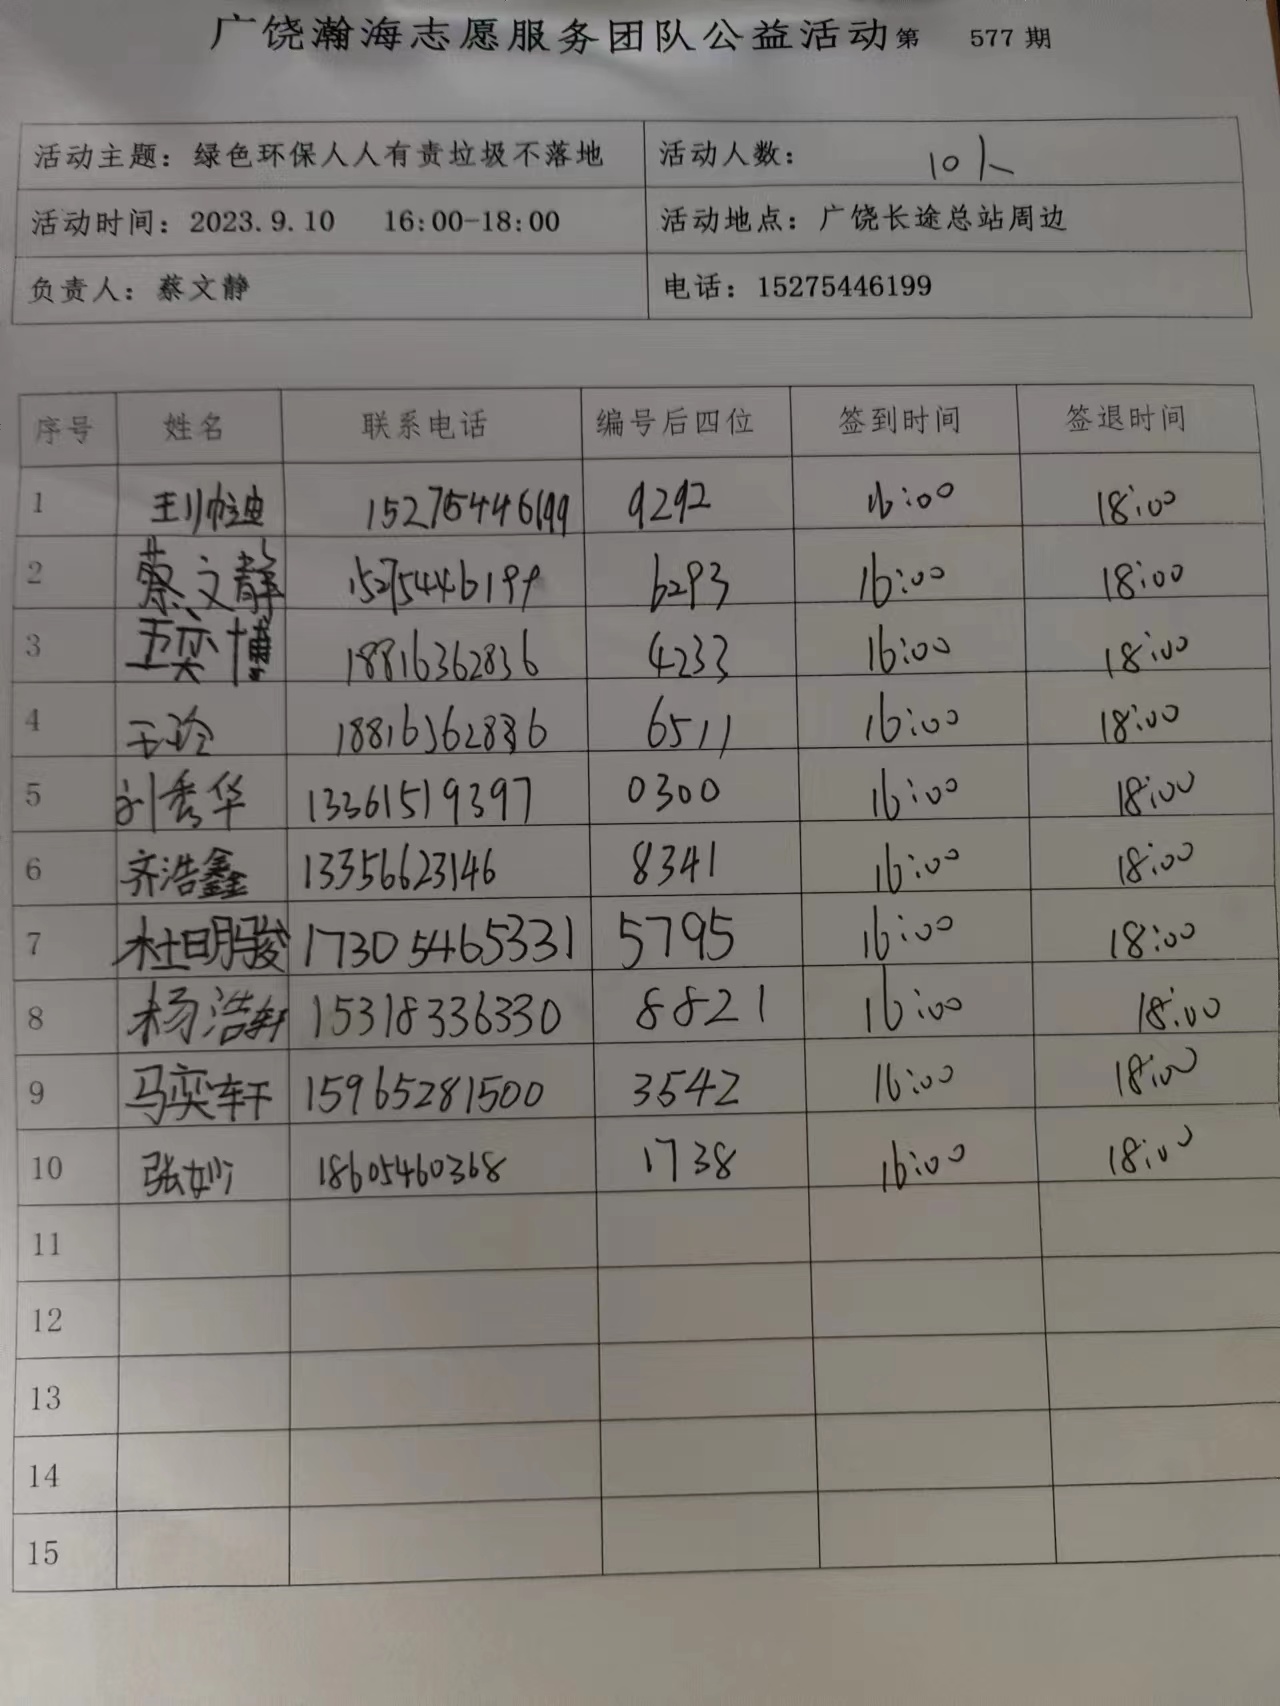 广饶瀚海志愿服务团队公益活动第 577 期
活动主题：绿色环保人人有责垃圾不落地 活动人数： 10人
活动时间：2023.9.10 16:00-18:00 活动地点：广饶长途总站周边
负责人：蔡文静 电话：15275446199
序号 姓名 联系电话 编号后四位 签到时间 签退时间
1 王帅迪 15275446199 9292 16:00 18:00
2 蔡文静 15275446199 6293 16:00 18:00
3 王奕博 18816362836 4233 16:00 18:00
4 王玲 18816362836 6511 16:00 18:00
5 刘秀华 13361519397 0300 16:00 18:00
6 齐浩鑫 13356623146 8341 16:00 18:00
7 杜明骏 17305465331 5795 16:00 18:00
8 杨浩轩 15318336330 8821 16:00 18:00
9 马奕轩 15965281500 3542 16:00 18:00
10 张妙 18605460368 1738 16:00 18:00
11
12
13
14
15